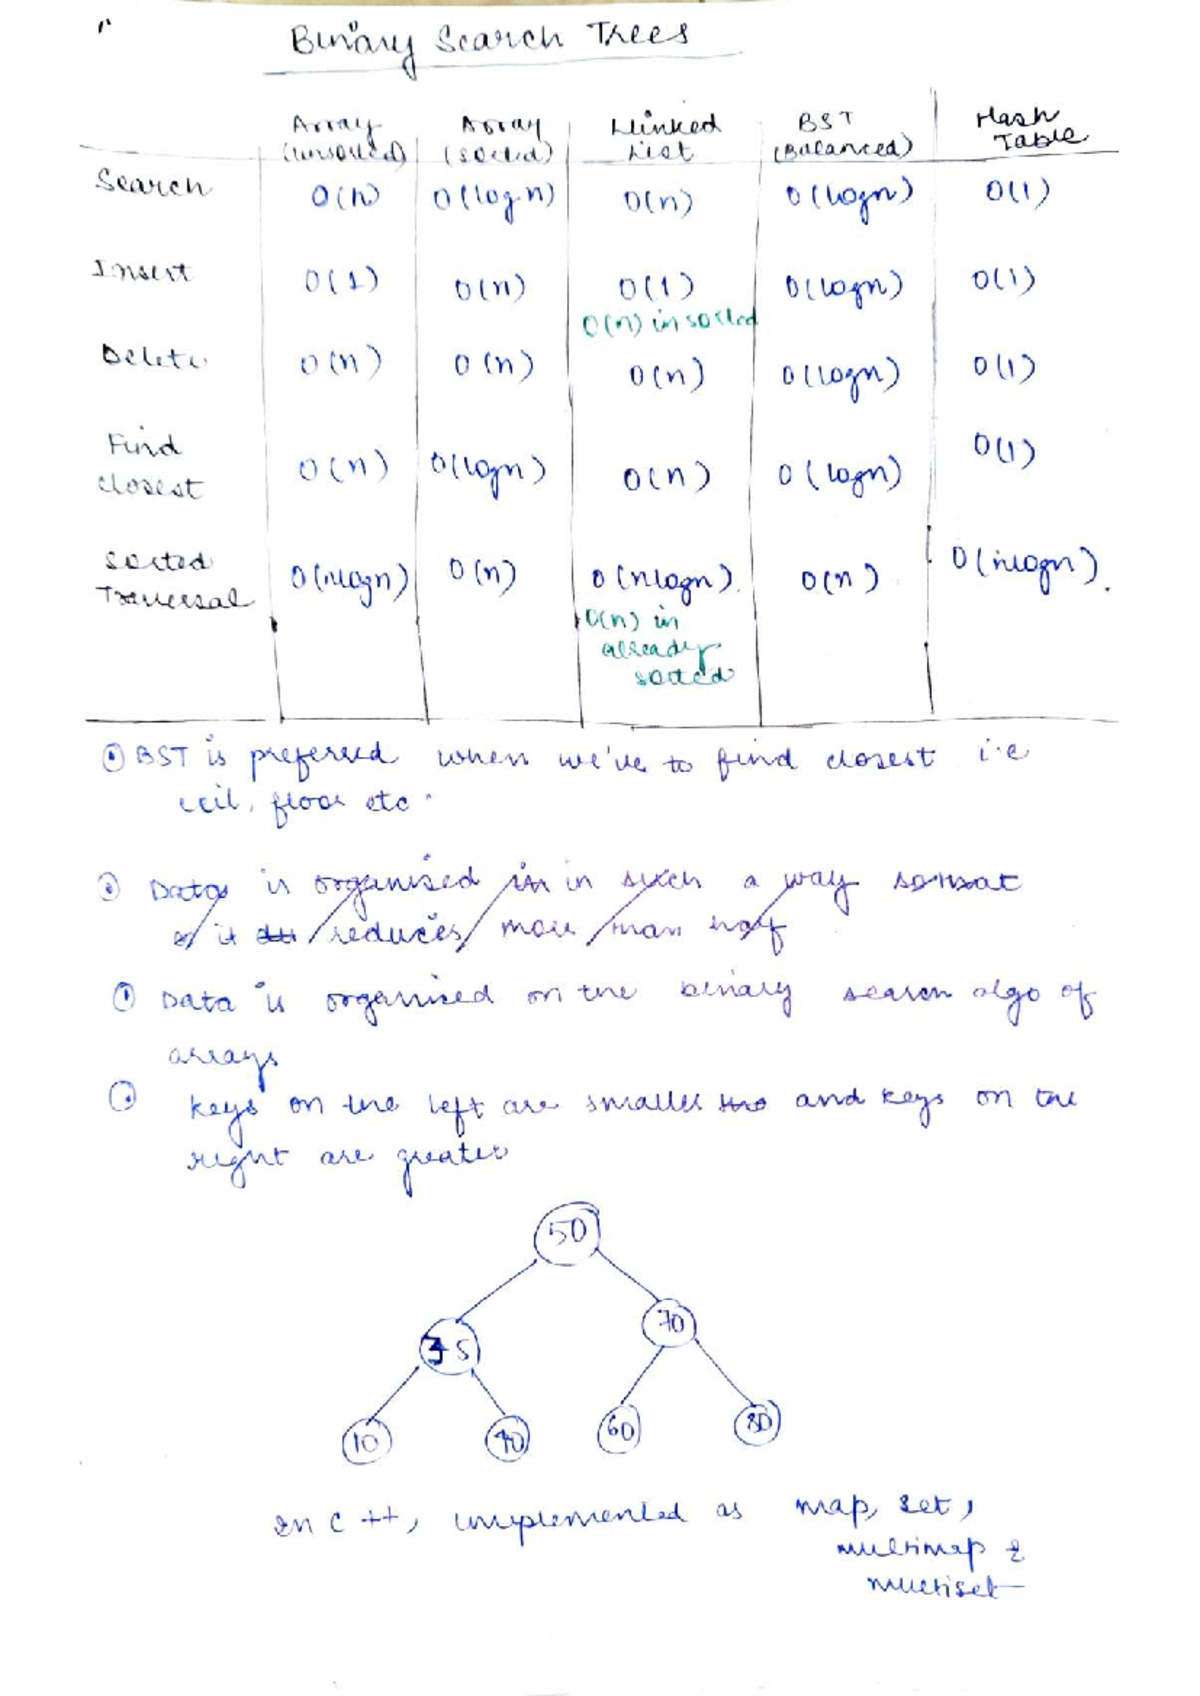 Binary Search Trees
Array (unsorted) Array (sorted) Linked List BST (Balanced) Hash Table
Search O(n) O(log n) O(n) O(logn) O(1)
Insert O(1) O(n) O(1) O(logn) O(1)
O(n) in sorted
Delete O(n) O(n) O(n) O(logn) O(1)
Find closest O(n) O(logn) O(n) O(logn) O(1)
Sorted Traversal O(nlogn) O(n) O(nlogn). O(n) O(nlogn).
O(n) in
already
sorted
BST is preferred when we've to find closest i.e
ceil, floor etc.
Data is organised in in such a way so that
it reduces more than half
Data is organised on the binary search algo of
arrays
keys on the left are smaller and keys on the
right are greater
50
35 70
10 40 60 80
In C++, implemented as map, set,
multimap &
multiset